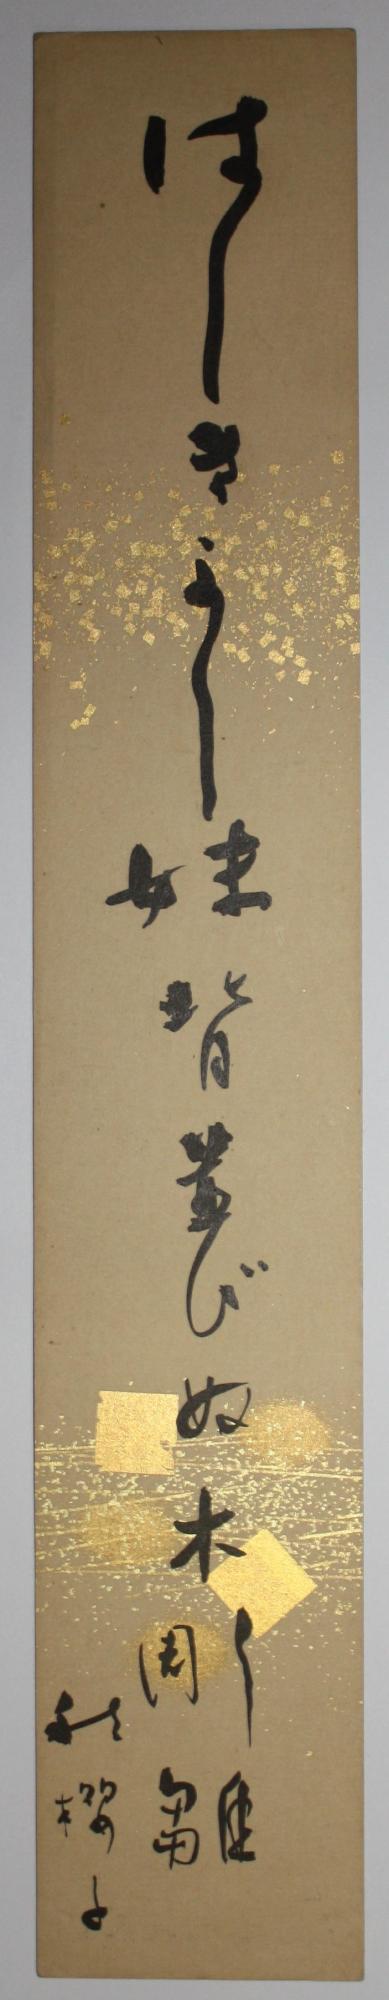 はしきよし妹背並びぬ木彫雛
秋櫻子